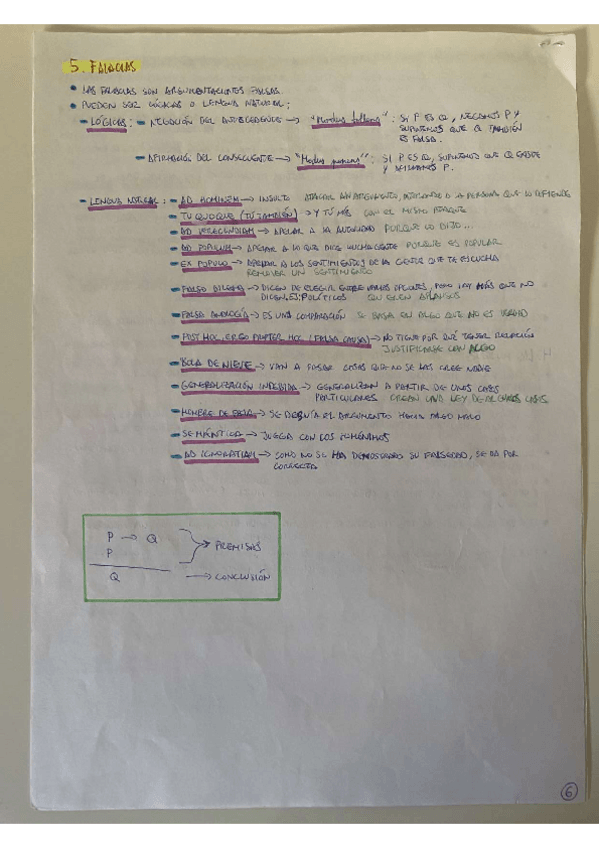 5. FALACIAS
• LAS FALACIAS SON ARGUMENTACIONES FALSAS.
• PUEDEN SER LÓGICAS O LENGUA NATURAL:
- LÓGICAS: - NEGACIÓN DEL ANTECEDENTE → "Modus tollens": SI P ES Q, NEGAMOS P Y
SUPONEMOS QUE Q TAMBIÉN
ES FALSA.
- AFIRMACIÓN DEL CONSECUENTE → "Modus ponens": SI P ES Q, SUPONEMOS QUE Q EXISTE
Y AFIRMAMOS P.
- LENGUA NATURAL: - AD HOMINEM → INSULTO ATACAR UN ARGUMENTO, ATACANDO A LA PERSONA QUE LO DEFIENDE
- TU QUOQUE (TÚ TAMBIÉN) → Y TÚ MÁS CON EL MISMO ATAQUE
- AD VERECUNDIAM → APELAR A LA AUTORIDAD PORQUE LO DIJO...
- AD POPULUM → APELAR A LO QUE DICE MUCHA GENTE PORQUE ES POPULAR
- EX POPULO → APELAR A LOS SENTIMIENTOS DE LA GENTE QUE TE ESCUCHA
REMOVER UN SENTIMIENTO
- FALSO DILEMA → DICEN DE ELEGIR ENTRE VARIAS OPCIONES, PERO HAY MÁS QUE NO
DICEN. EJ: POLÍTICOS
- FALSA ANALOGÍA → ES UNA COMPARACIÓN SE BASA EN ALGO QUE NO ES
- POST HOC, ERGO PROPTER HOC (FALSA CAUSA) → NO TIENE POR QUÉ TENER RELACIÓN
JUSTIFICARSE CON ALGO
- BOLA DE NIEVE → VAN A PASAR COSAS QUE NO SE LAS CREE NADIE
- GENERALIZACIÓN INDEBIDA → GENERALIZAN A PARTIR DE UNOS CASOS
PARTICULARES CREAN UNA LEY DE ALGUNOS CASOS
- HOMBRE DE PAJA → SE DESVÍA EL ARGUMENTO HACIA ALGO MALO
- SEMÁNTICA → JUEGA CON LOS HOMÓNIMOS
- AD IGNORATIAM → COMO NO SE HA DEMOSTRADO SU FALSEDAD, SE DA POR
CORRECTA
P → Q
P
→ PREMISAS
Q → CONCLUSIÓN
6